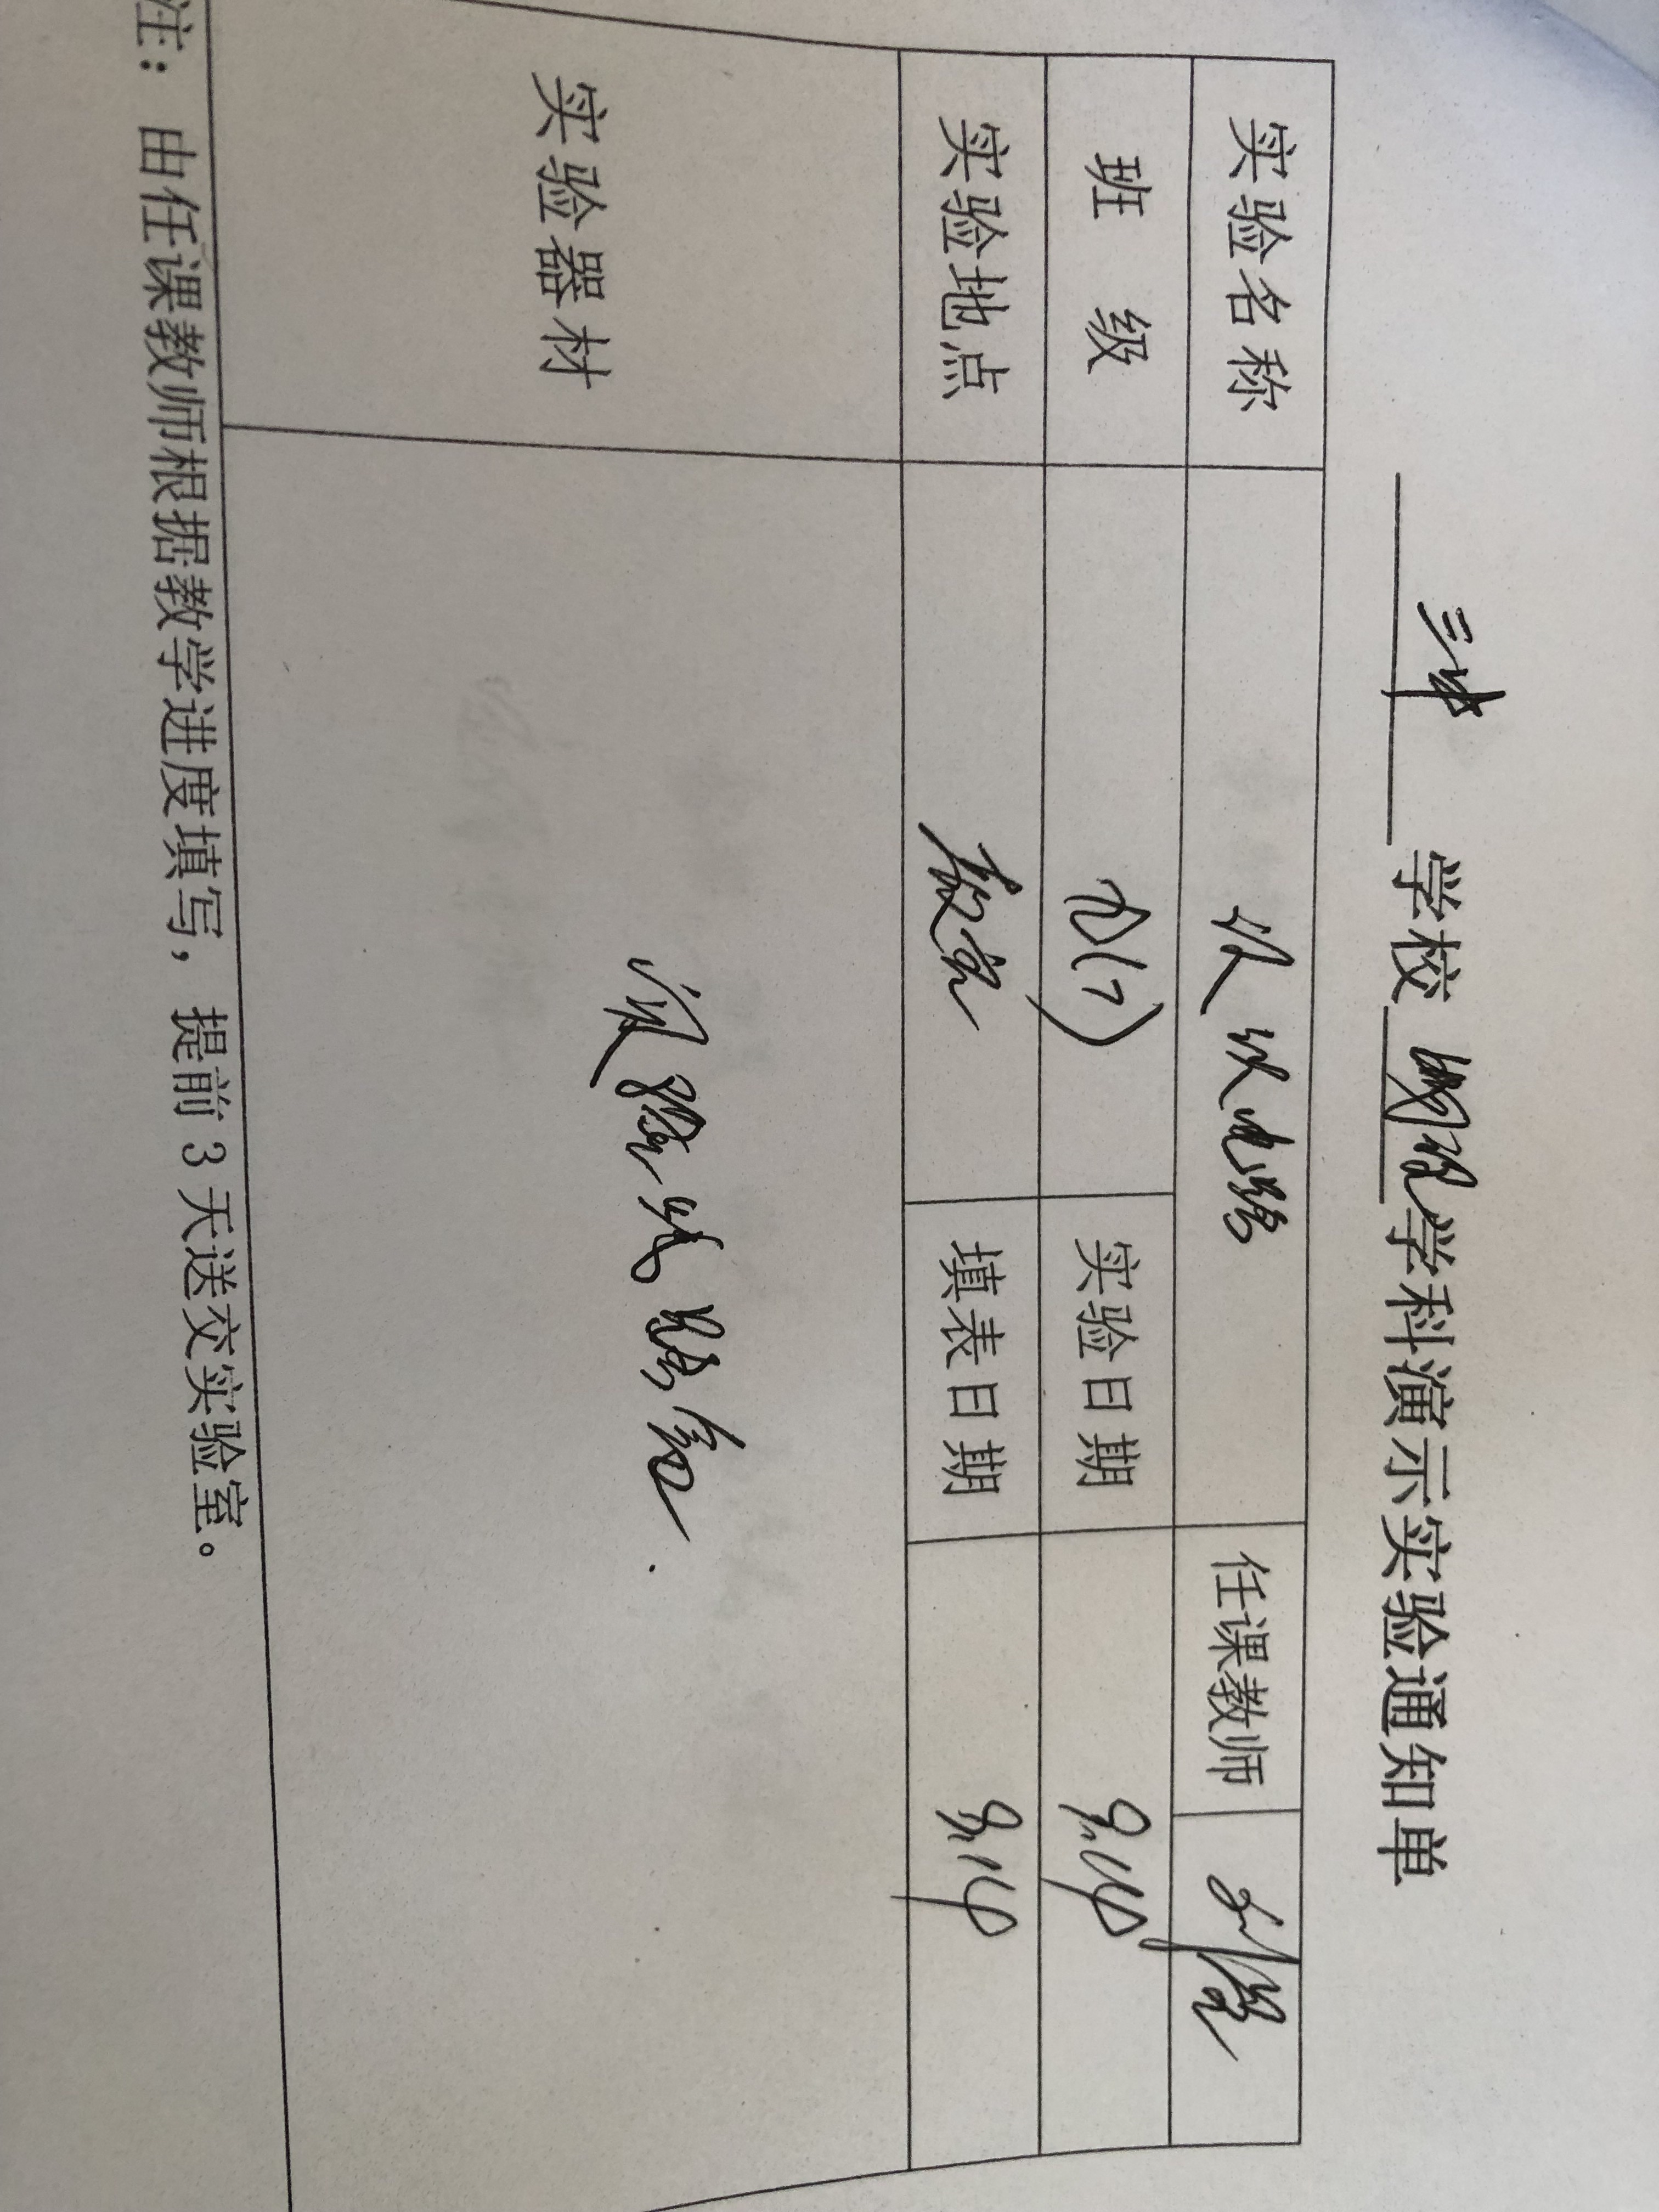 三中 学校 物理 学科演示实验通知单
实验名称 认识电路 任课教师
班 级 九(7) 实验日期 9.14
实验地点 教室 填表日期 9.14
实验器材
注：由任课教师根据教学进度填写，提前3天送交实验室。